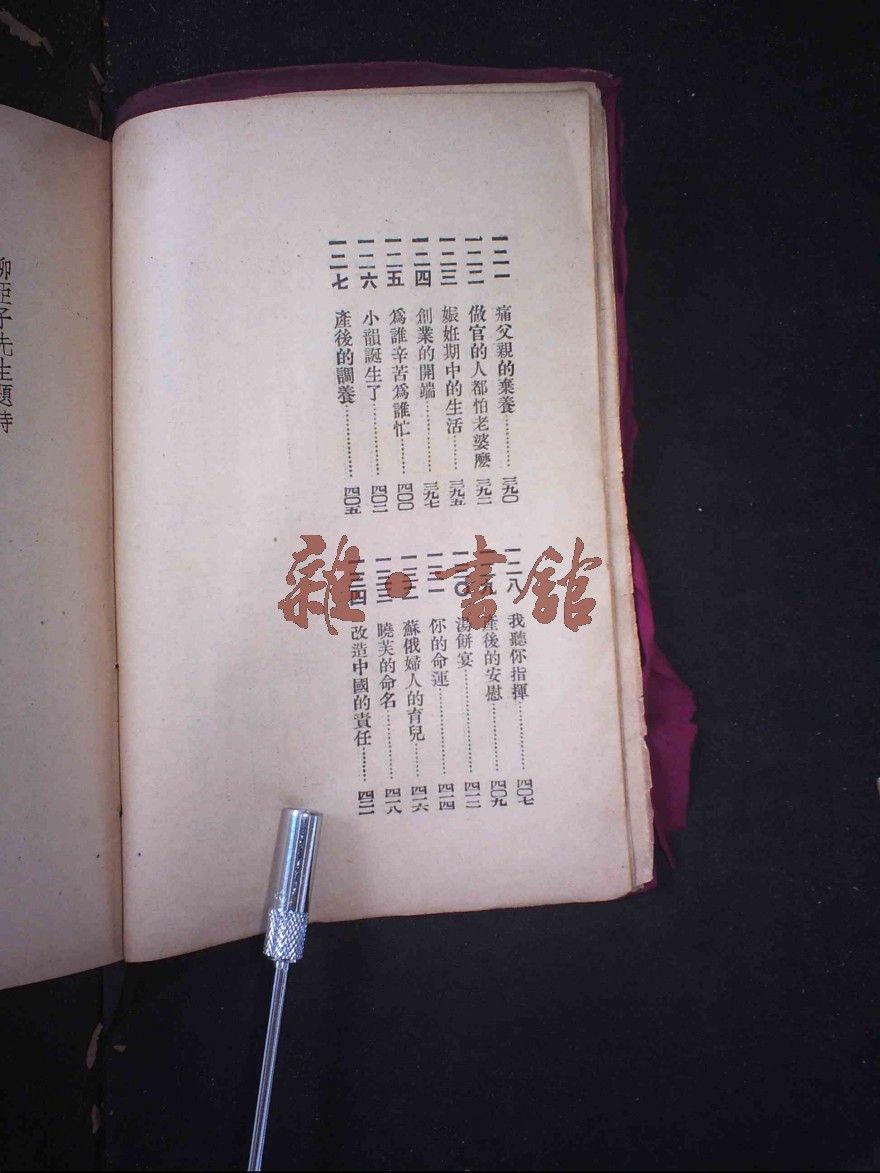 一二一 痛父親的棄養…………三九〇
一二二 做官的人都怕老婆麽 三九二
一二三 娠姙期中的生活………三九五
一二四 創業的開端……………三九七
一二五 爲誰辛苦爲誰忙………四〇〇
一二六 小韻誕生了……………四〇二
一二七 產後的調養……………四〇五
一二八 我聽你指揮……………四〇七
一二九 產後的安慰……………四〇九
一三〇 湯餅宴…………………四一三
一三一 你的命運………………四一四
一三二 蘇俄婦人的育兒………四一六
一三三 曉芙的命名……………四一八
一三四 改造中國的責任………四二一
柳亞子先生題詩
雜·書館